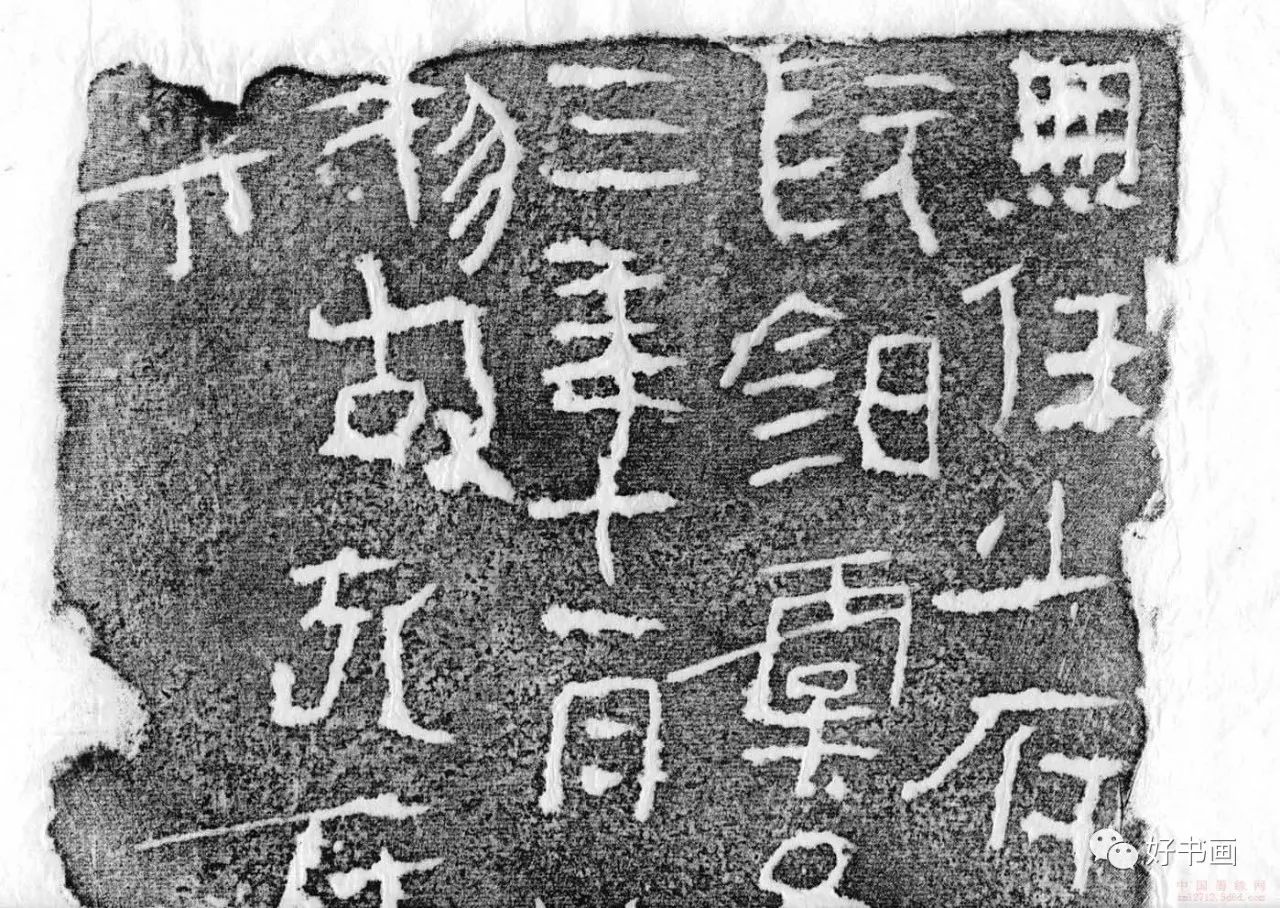 無任少府
髡鉗
三年十一月
物故死在
下
好书画